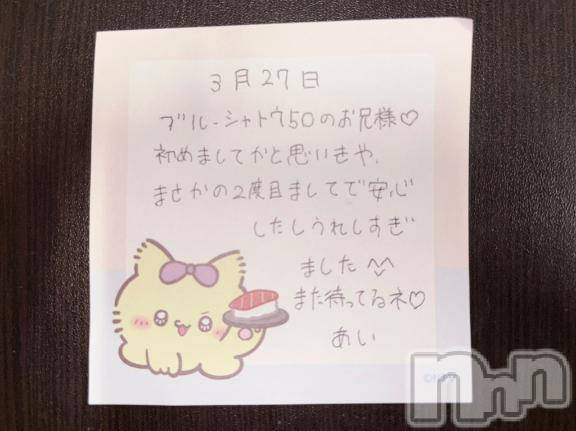 3月27日
ブルーシャトウ50のお兄様♡
初めましてかと思いきや、
まさかの2度目ましてで安心
したしうれしすぎ
ました^^
また待ってるネ♡
あい
nnn